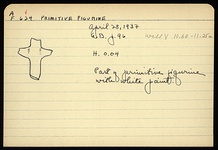 A 639 PRIMITIVE FIGURINE
April 28, 1937
B. p. 96
H. 0.09
Part of primitive figurine
with white paint.